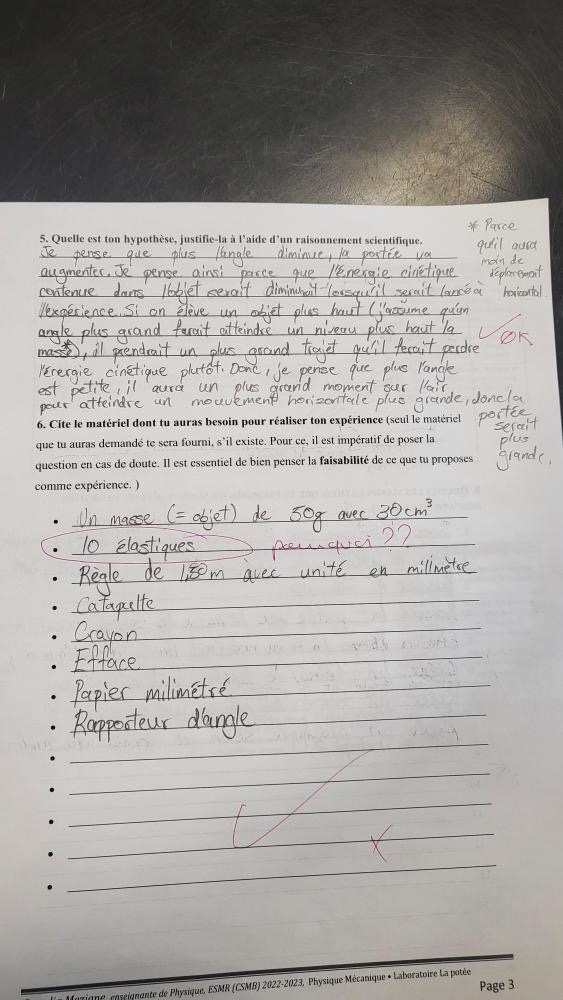 5. Quelle est ton hypothèse, justifie-la à l'aide d'un raisonnement scientifique.
Je pense que plus l'angle diminue, la portée va
augmenter. Je pense ainsi parce que l'énergie cinétique
contenue dans l'objet serait lorsqu'il serait lancé à
l'expérience. Si on élève un objet plus haut (j'assume qu'un
angle plus grand ferait atteindre un niveau plus haut la
masse*), il prendrait un plus grand trajet qu'il ferait perdre
l'érergie cinétique plutôt. Donc, je pense que plus l'angle
est petite, il aura un plus grand moment sur l'air
pour atteindre un mouvement horizontale plus grande, donc la
portée
serait
plus
grande.
* Parce
qu'il aura
moin de
déplacement
horizontal.
OK
6. Cite le matériel dont tu auras besoin pour réaliser ton expérience (seul le matériel
que tu auras demandé te sera fourni, s'il existe. Pour ce, il est impératif de poser la
question en cas de doute. Il est essentiel de bien penser la faisabilité de ce que tu proposes
comme expérience. )
• Un masse (= objet) de 50g avec 30cm³
• 10 élastiques pourquoi ??
• Règle de m avec unité en milimètre
• Catapulte
• Crayon
• Efface
• Papier milimétré
• Rapporteur d'angle
•
•
•
•
•
enseignante de Physique, ESMR (CSMB) 2022-2023, Physique Mécanique • Laboratoire La potée
Page 3